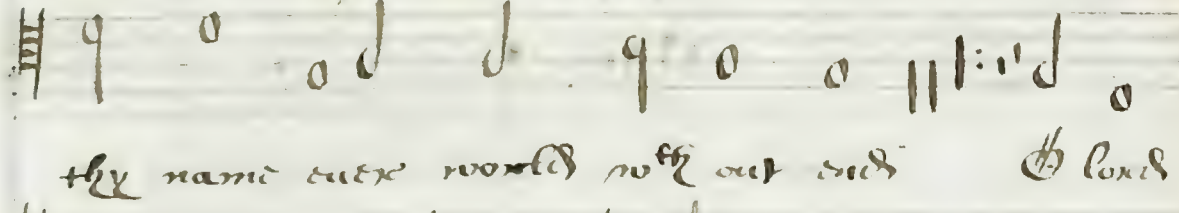 thy name euer world wth out end O lord